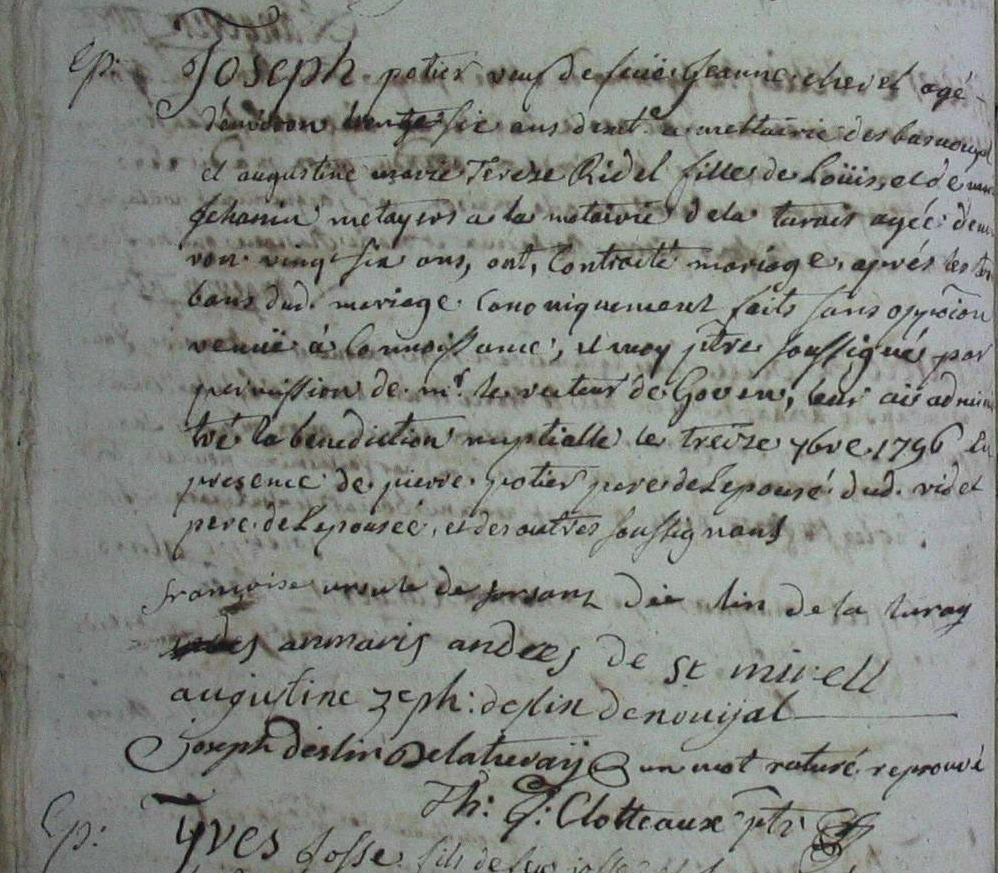 Ep: Joseph potier veuf de feüe Jeanne chevel agé
d'environ trente six ans demt a mettairie des
et augustine marie Tereze Ridel fille de Loüis, et de
Jehanin metayers a la metairie dela turais agée d'envi
ron vingt six ans, ont, Contracté mariage, aprés les
bans dud. mariage Canoniquement faits sans opposion
venüe à Connoissance, et moy ptre soussigné par
permission de mr. le recteur de Goven, leur ai admini
tré la benediction nuptialle le treize 7bre 1796 En
presence de pierre potier pere de Lepousé dud. ridel
pere de Lepousée, et des autres soussignans
françoise ursule de dée lin de la turay
anmaris andres de st mirell
augustine zeph: deslin denouijal
joseph deslin Delatuvaij un mot raturé reprouvé
Th: J: Clotteaux ptr
Ep: Yves Josse fils de feu josse